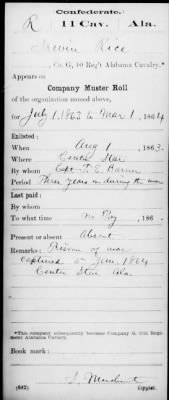 Confederate.
R 11 Cav. Ala.
Irwin Rice
Co. G, 10 Reg't Alabama Cavalry.*
Appears on
Company Muster Roll
of the organization named above,
for July 1, 1863 to Mar 1, 1864
Enlisted:
When Aug 1, 1863.
Where Center Star
By whom Capt. T. E. Barner
Period Three years or during the war
Last paid:
By whom
To what time no Pay, 186 .
Present or absent Absent
Remarks: Prisoner of war
captured 25 Jan. 1864
Center Star Ala
*This company subsequently became Company G, 11th Regiment Alabama Cavalry.
Book mark:
(642) Copyist.